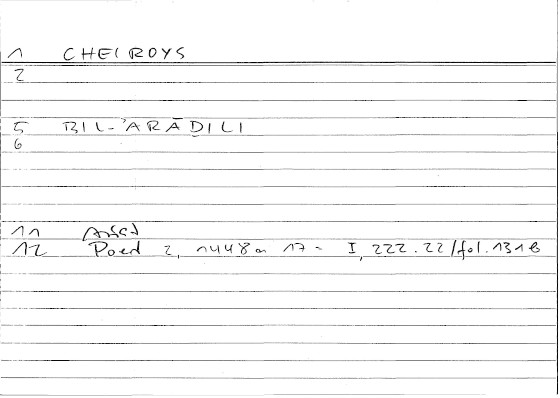 1 CHEIROYS
2
5 BIL-ʾARĀḎILI
6
11
12 Poed 2, 1448a 17 - I, 222.22/fol.131b